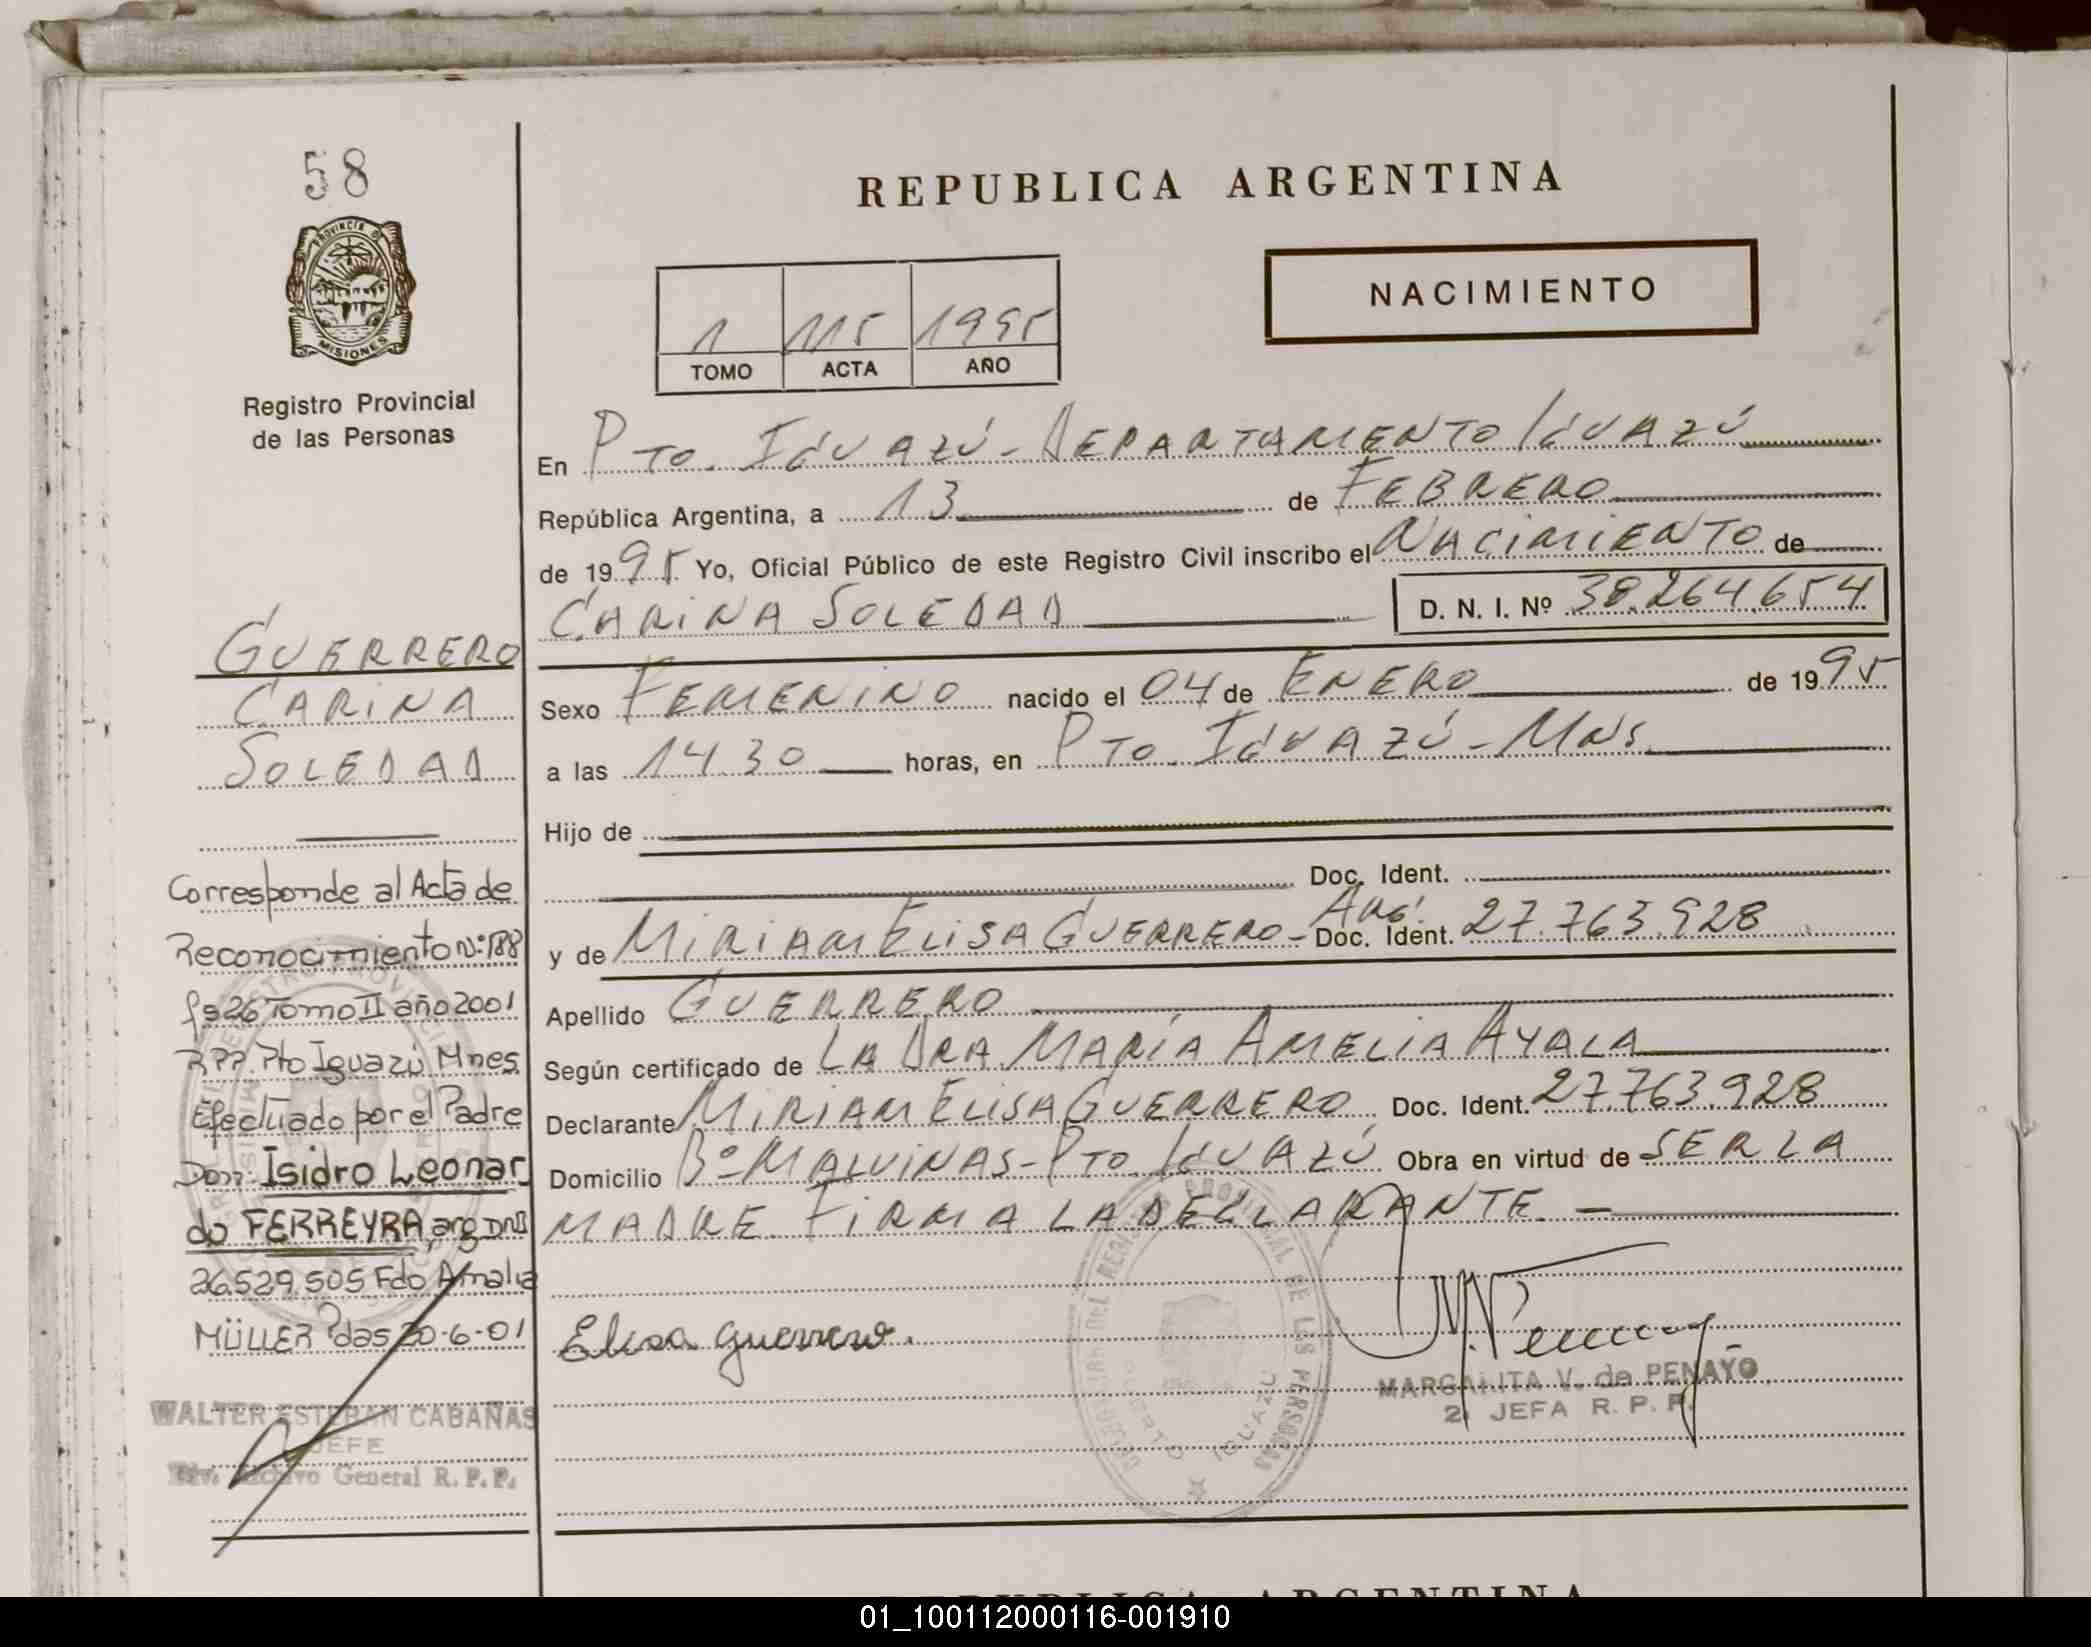 58
PROVINCIA DE
MISIONES
Registro Provincial
de las Personas
GUERRERO
CARINA
SOLEDAD
Corresponde al Acta de
Reconocimiento Nº 188
fs 26 Tomo II año 2001
RPP. Pto Iguazú Mnes
Efectuado por el Padre
Don: Isidro Leonar
do FERREYRA, arg DNI
26.529.505 Fdo Amalia
MÜLLER Pdas 20-6-01
WALTER ESTEBAN CABAÑAS
JEFE
Div. Archivo General R. P. P.
REPUBLICA ARGENTINA
NACIMIENTO
1 115 1995
TOMO ACTA AÑO
En Pto. IGUAZÚ - DEPARTAMENTO IGUAZÚ
República Argentina, a 13 de FEBRERO
de 1995 Yo, Oficial Público de este Registro Civil inscribo el NACIMIENTO de
CARINA SOLEDAD D. N. I. Nº 38.264.654
Sexo FEMENINO nacido el 04 de ENERO de 1995
a las 14.30 horas, en Pto. IGUAZÚ - Mns.
Hijo de
Doc. Ident.
y de MIRIAM ELISA GUERRERO - Arg. Doc. Ident. 27.763.928
Apellido GUERRERO
Según certificado de LA DRA MARÍA AMELIA AYALA
Declarante MIRIAM ELISA GUERRERO Doc. Ident. 27.763.928
Domicilio Bº MALVINAS - Pto IGUAZÚ Obra en virtud de SER LA
MADRE. FIRMA LA DECLARANTE. -
Elisa Guerrero.
MARGARITA V. de PENAYO
2ª JEFA R. P. P.
DELEGACION DEL REGISTRO PROVINCIAL DE LAS PERSONAS
PUERTO IGUAZU
REPUBLICA ARGENTINA
01_100112000116-001910